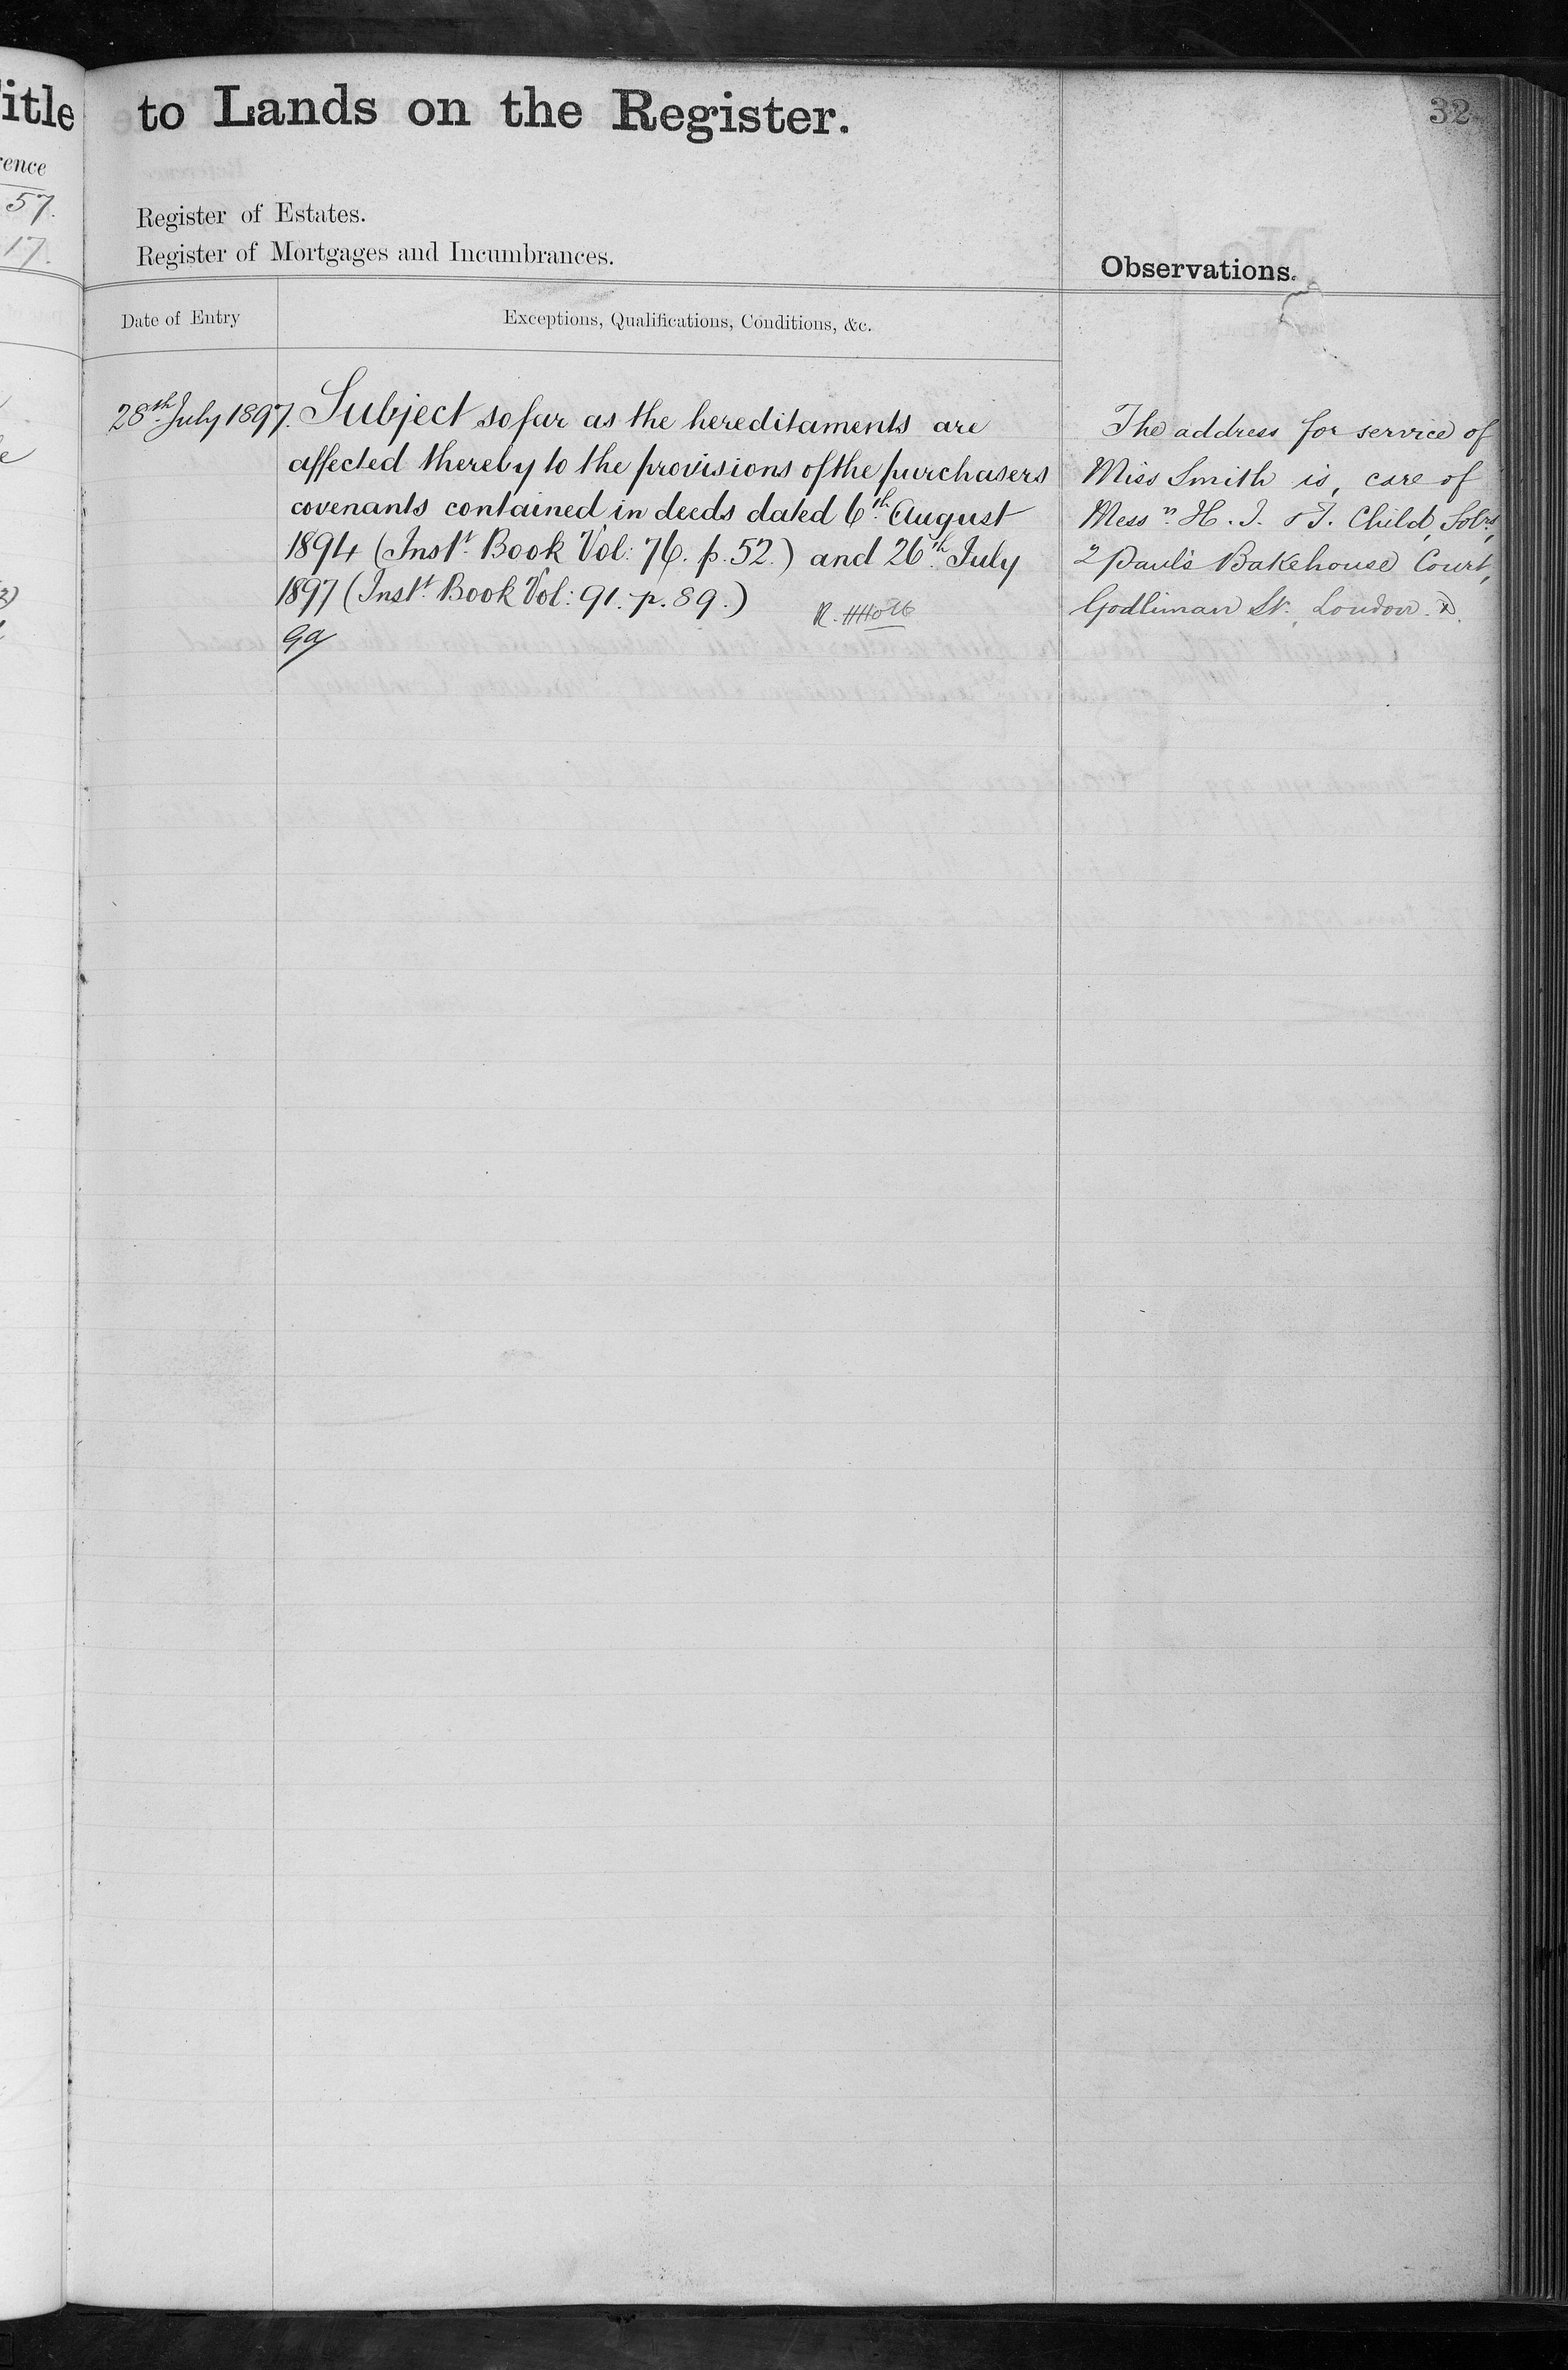 itle
to Lands on the Register.
32
rence
57.
17.
Register of Estates.
Register of Mortgages and Incumbrances.
Observations.
Date of Entry
Exceptions, Qualifications, Conditions, &c.
28th July 1897. Subject so far as the hereditaments are
affected thereby to the provisions of the purchasers
covenants contained in deeds dated 6th August
1894 (Instt Book Vol: 76. p. 52.) and 26th July
1897 (Instt Book Vol: 91. p. 89.)
The address for service of
Miss Smith is, care of
Messrs H. J. & T. Child, Solrs,
2 Paul's Bakehouse Court,
Godliman St., London.